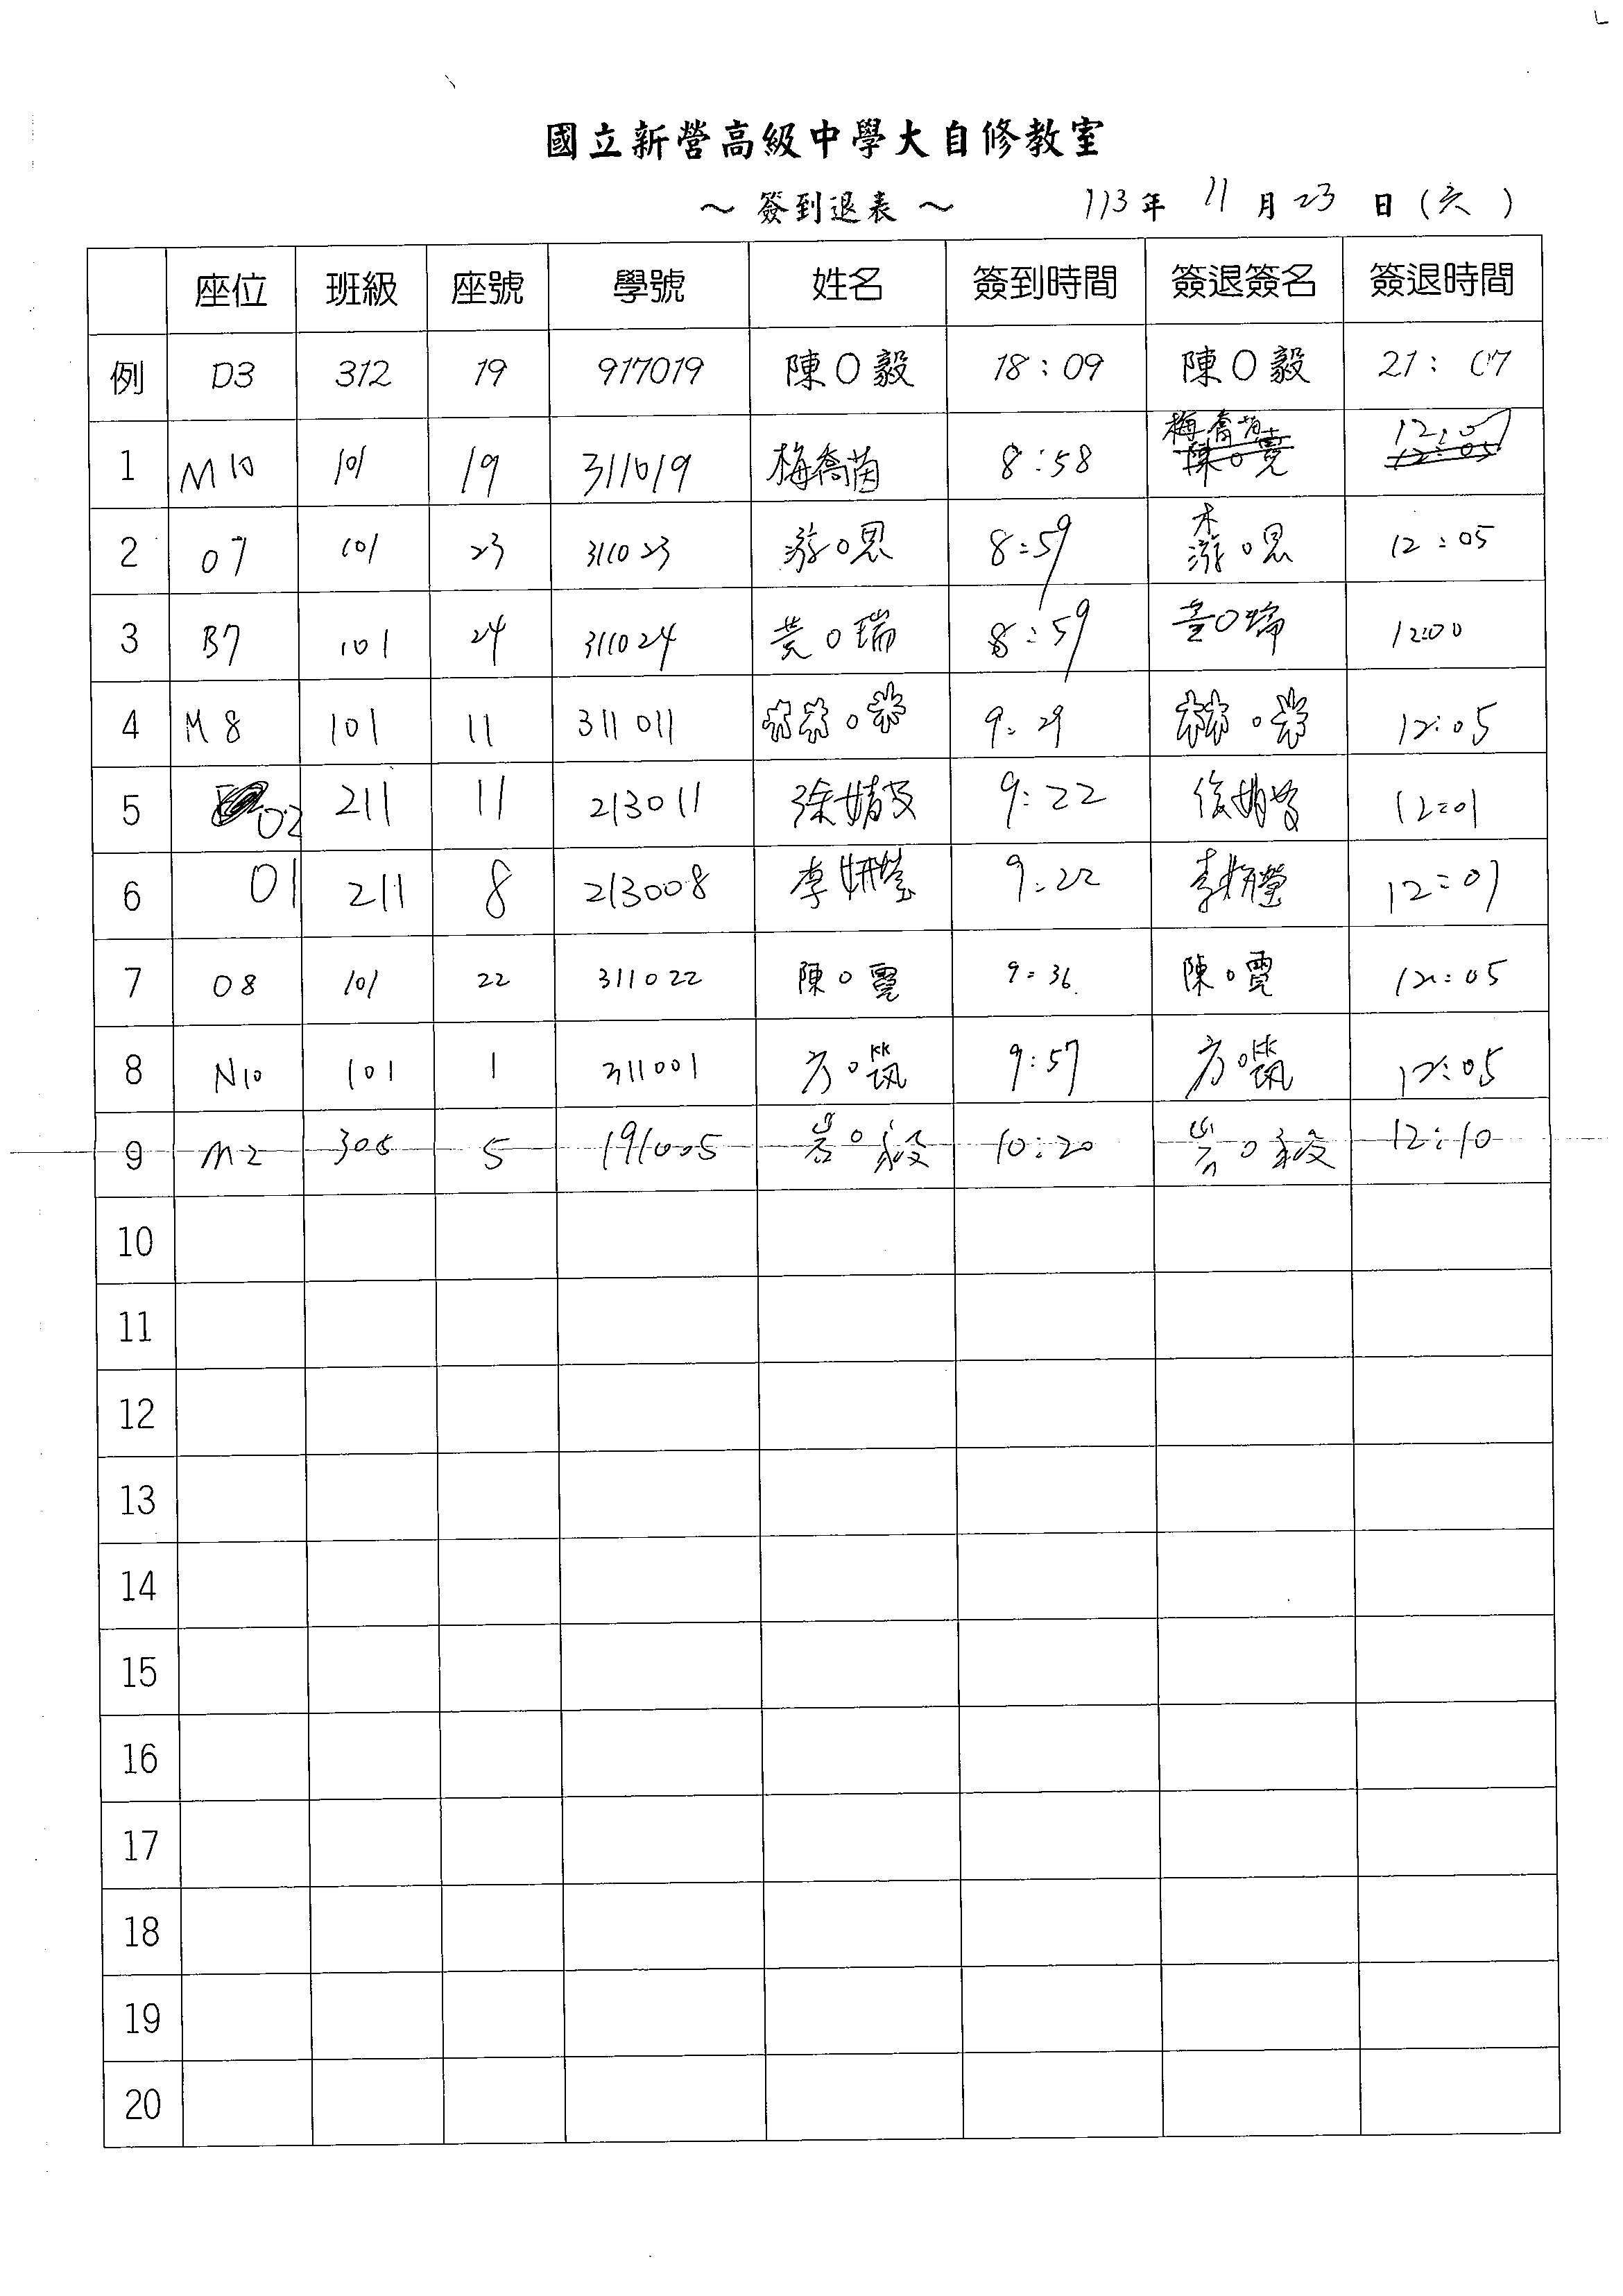 國立新營高級中學大自修教室
～ 簽到退表 ～ 113年 11月23日(六)
座位 班級 座號 學號 姓名 簽到時間 簽退簽名 簽退時間
例 D3 312 19 917019 陳O毅 18:09 陳O毅 21:07
1 M10 101 19 311019 梅喬茵 8:58 梅喬茵
2 O7 101 23 311023 游O恩 8:59 游O恩 12:05
3 B7 101 24 311024 黃O瑞 8:59 黃O瑞 12:00
4 M8 101 11 311011 林O 9:29 林O 12:05
5 O2 211 11 213011 徐婧 9:22 徐婧 12:01
6 O1 211 8 213008 李妍瑩 9:22 李妍瑩 12:01
7 O8 101 22 311022 陳O霓 9:36 陳O霓 12:05
8 N10 101 1 311001 方O筑 9:57 方O筑 12:05
9 M2 306 5 191005 O毅 10:20 O毅 12:10
10
11
12
13
14
15
16
17
18
19
20